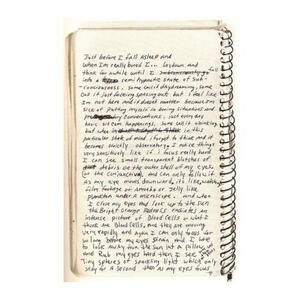 Just before I fall asleep and
when I'm really bored I... laydown and
think for awhile until I fall
into a semi hypnotic state of sub-
consciousness, some call it daydreaming, some
call it just fucking spacing out but i feel like
I'm not here and it doesnt matter because I'm
sick of putting myself in boring situations and
conversations, just every day
basic sit com happenings, some call it thinking
but when in this
particular state of mind I forget to think and it
becomes strictly observatory. I notice things
very sensitively like if I focus really hard
I can see small transparent blotches of
debris on the outer shell of my eyes
(or the conjunctiva). and can only follow it
as my eye moves downward, its like watching
film footage of amoebas or jelly like
plankton under a microscope. and when
I close my eyes and look up to the sun
the Bright Orange Redness radiates an
intense picture of blood cells or what I
think are Blood cells, and they are moving
very rapidly and again I can only focus for
so long before my eyes strain and I have
to look away from the sun into a pillow
and Rub my eyes hard then I see
Tiny spheres of sparkling light which only
stay for a second then as my eyes focus